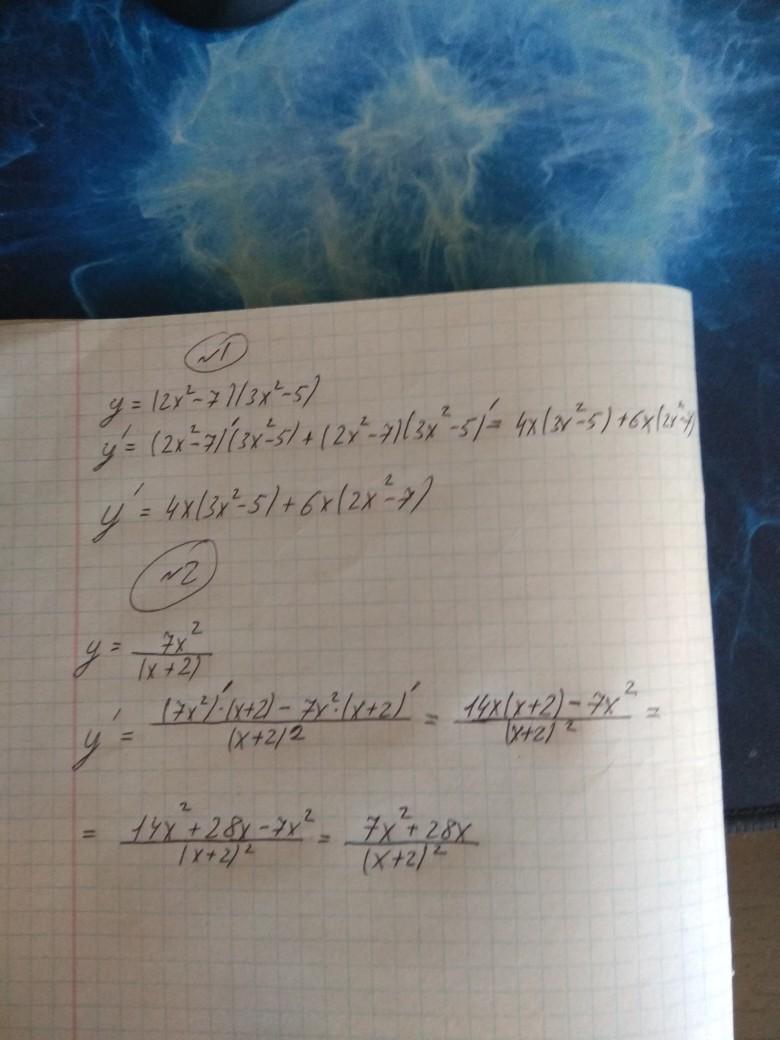 №1
y = (2x²-7)(3x²-5)
y' = (2x²-7)'(3x²-5) + (2x²-7)(3x²-5)' = 4x(3x²-5) + 6x(2x²-7)
y' = 4x(3x²-5) + 6x(2x²-7)
№2
y = 7x²/(x+2)
y' = ((7x²)'·(x+2) - 7x²·(x+2)')/(x+2)² = (14x(x+2) - 7x²)/(x+2)² =
= (14x² + 28x - 7x²)/(x+2)² = (7x² + 28x)/(x+2)²